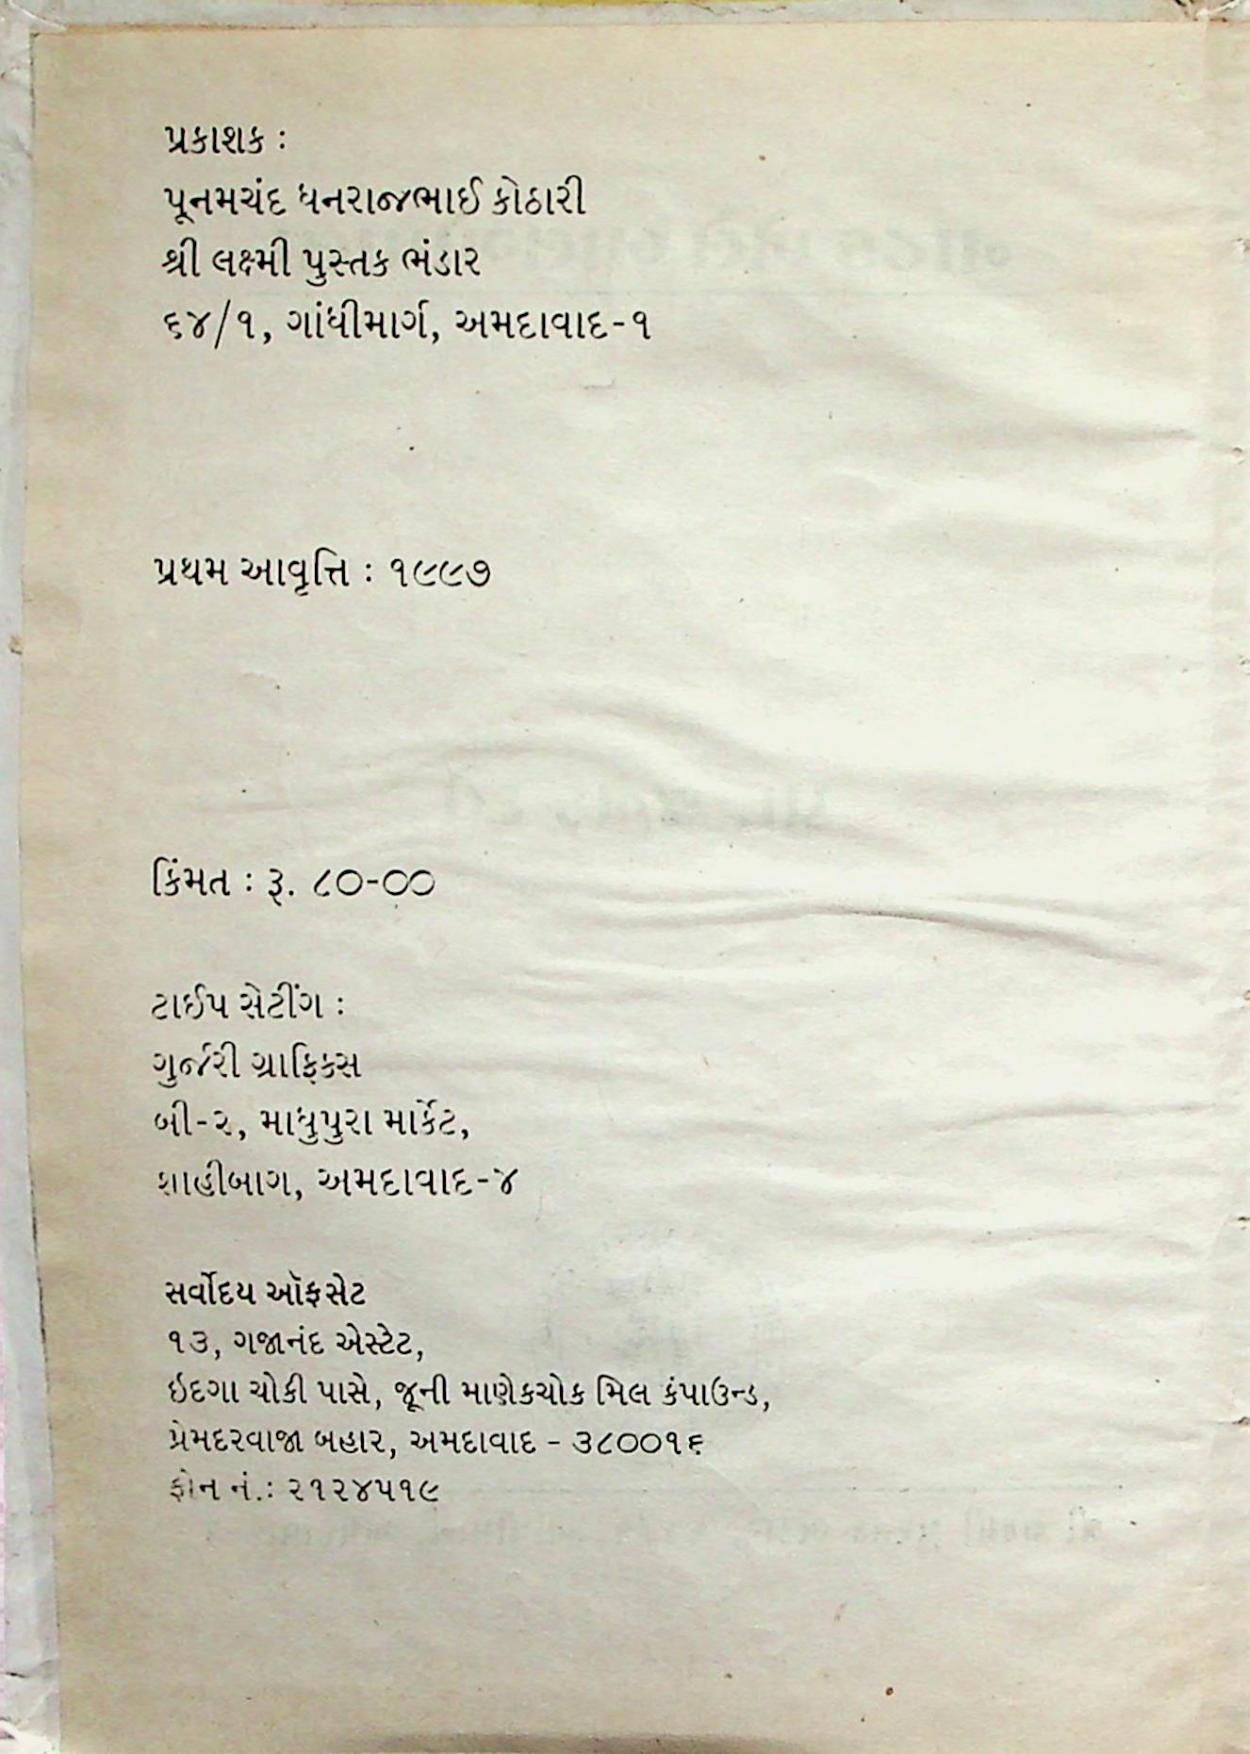 પ્રકાશક :
પૂનમચંદ ધનરાજભાઈ કોઠારી
શ્રી લક્ષ્મી પુસ્તક ભંડાર
૬૪/૧, ગાંધીમાર્ગ, અમદાવાદ-૧
પ્રથમ આવૃત્તિ : ૧૯૯૭
કિંમત : રૂ. ૮૦-૦૦
ટાઈપ સેટીંગ :
ગુર્જરી ગ્રાફિક્સ
બી-૨, માધુપુરા માર્કેટ,
શાહીબાગ, અમદાવાદ-૪
સર્વોદય ઑફસેટ
૧૩, ગજાનંદ એસ્ટેટ,
ઇદગા ચોકી પાસે, જૂની માણેકચોક મિલ કંપાઉન્ડ,
પ્રેમદરવાજા બહાર, અમદાવાદ - ૩૮૦૦૧૬
ફોન નં.: ૨૧૨૪૫૧૯